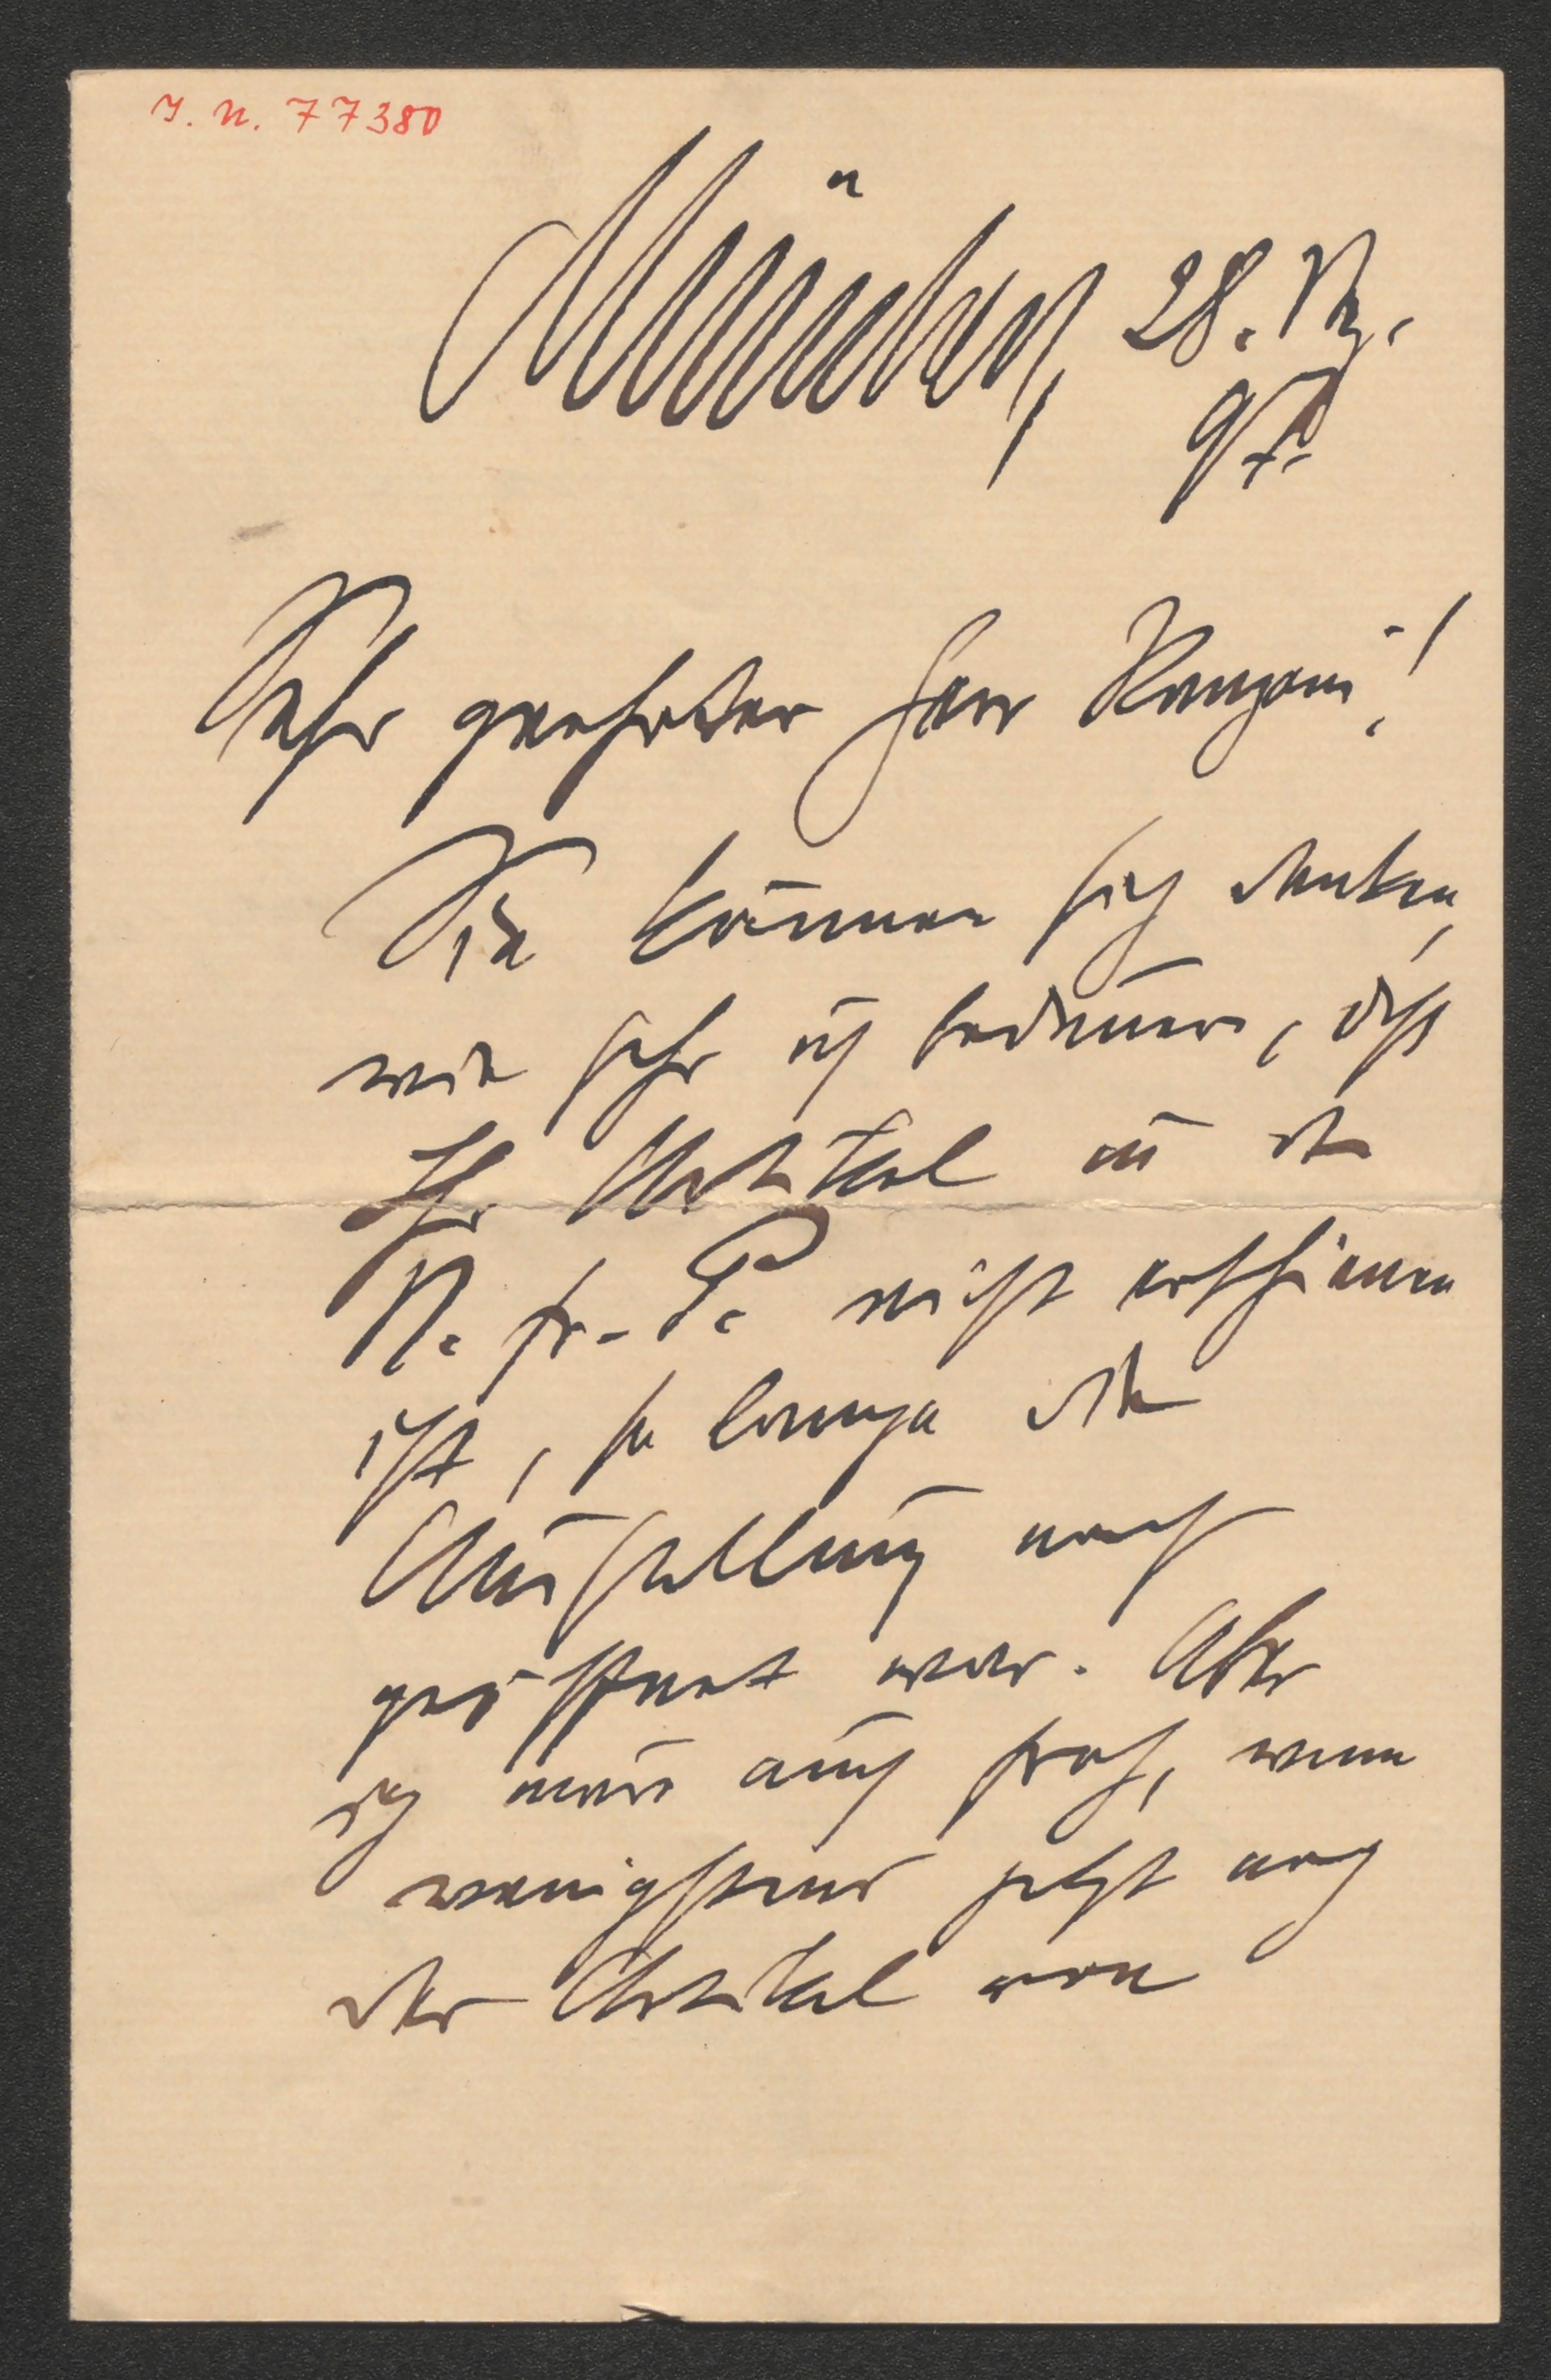 I. N. 77380
München, 28. Dz.
97.
Sehr geehrter Herr Ranzoni!
Sie können sich denken,
wie sehr ich bedauere, dß
Ihr Artikel in de
N. fr. P. nicht erschienen
ist, so lange die
Ausstellung noch
geöffnet war. Aber
ich wäre auch froh, wenn
wenigstens jetzt noch
der Artikel von